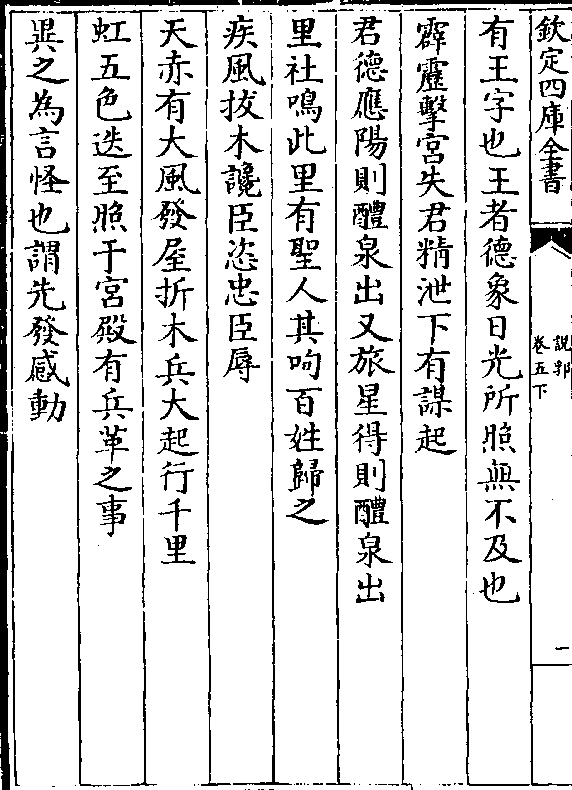 欽定四庫全書
說郛
卷五下
一
有王字也王者德象日光所照無不及也
霹靂擊宮失君精泄下有謀起
君德應陽則醴泉出又旅星得則醴泉出
里社鳴此里有聖人其呴百姓歸之
疾風拔木讒臣恣忠臣辱
天赤有大風發屋折木兵大起行千里
虹五色迭至照于宮殿有兵革之事
異之為言怪也謂先發感動